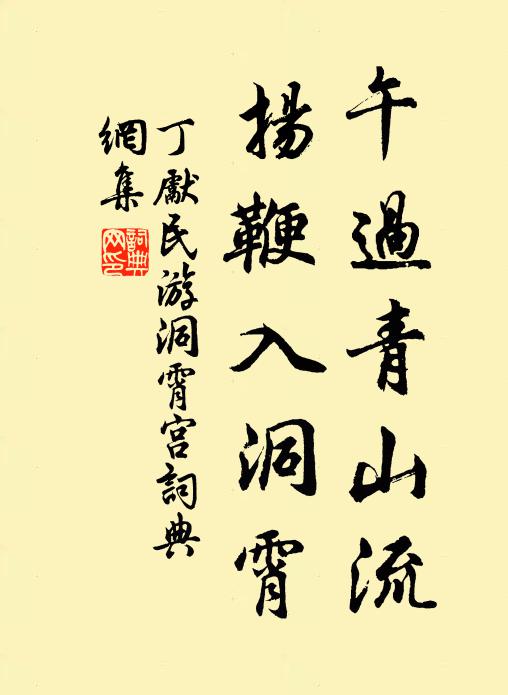 午過青山流
揚鞭入洞霄
丁獻民游洞霄宮詞典
網集
詞典網印